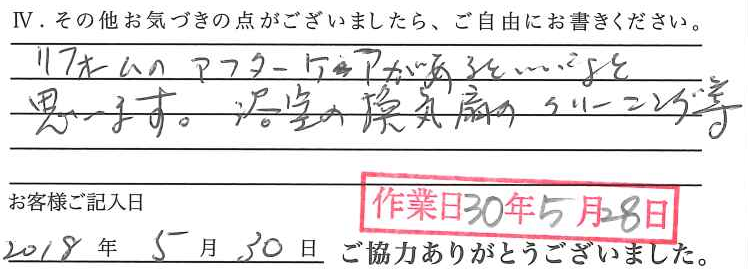 Ⅳ．その他お気づきの点がございましたら、ご自由にお書きください。
リフォームのアフターケアがあるといいなと
思います。浴室の換気扇のクリーニング等
お客様ご記入日
作業日30年5月28日
2018年5月30日 ご協力ありがとうございました。